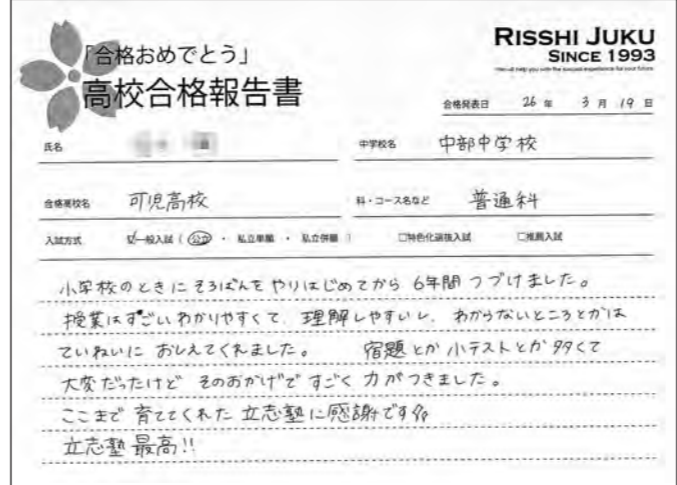 「合格おめでとう」
高校合格報告書
RISSHI JUKU
SINCE 1993
合格発表日 26 年 3 月 19 日
氏名
中学校名 中部中学校
合格高校名 可児高校
科・コース名など 普通科
入試方式 ☑一般入試（ 公立 ・ 私立単願 ・ 私立併願 ） □特色化選抜入試 □推薦入試
小学校のときにそろばんをやりはじめてから 6年間 つづけました。
授業はすごいわかりやすくて、理解しやすいし、わからないところとかは
ていねいに おしえてくれました。 宿題とか小テストとか多くて
大変だったけど そのおかげで すごく 力がつきました。
ここまで 育ててくれた 立志塾に感謝です
立志塾 最高!!